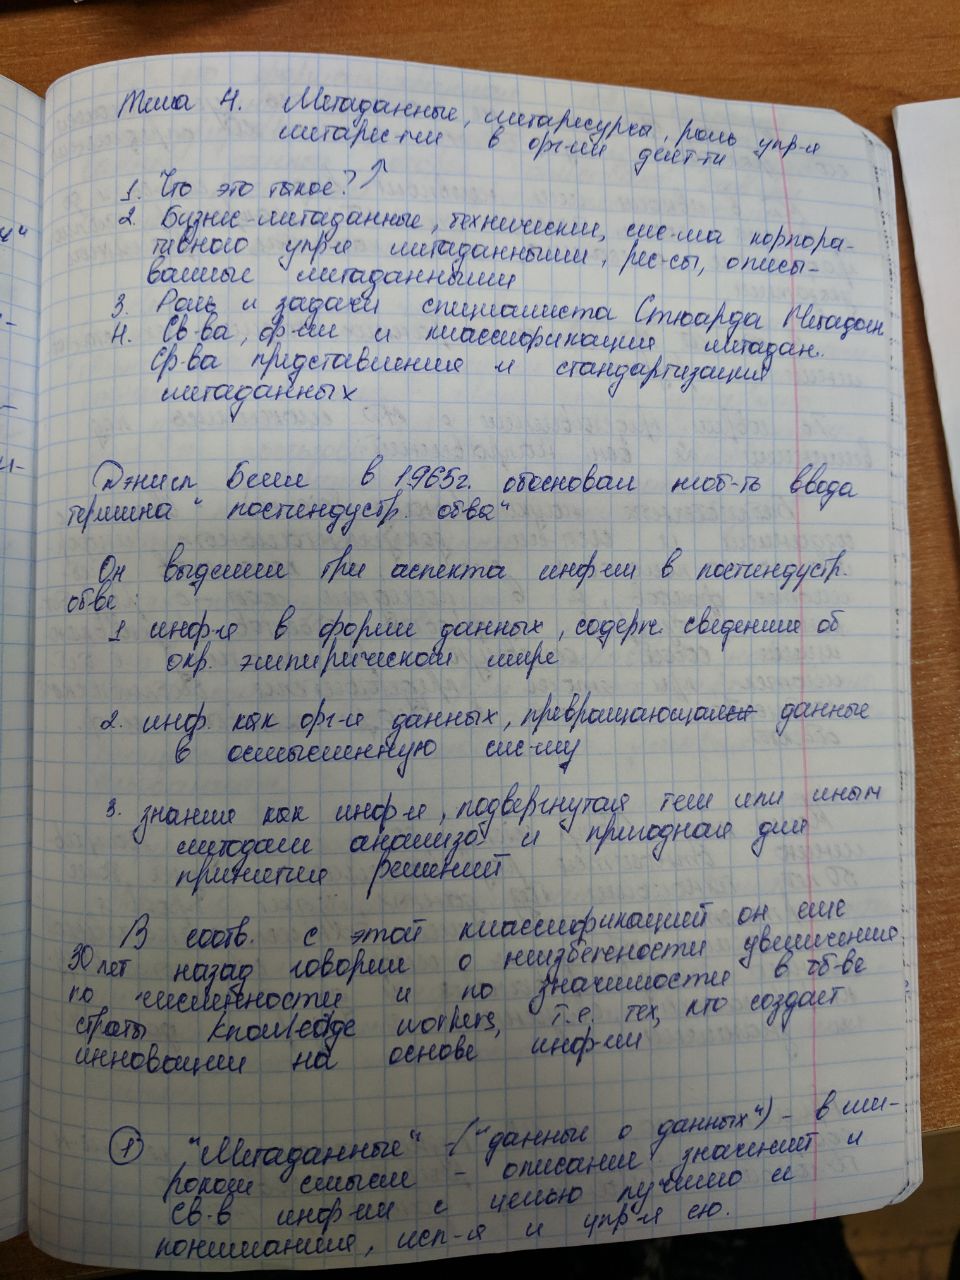 Тема 4. Метаданные, метаресурсы, роль упр-я
метарес-ми в орг-ии деят-ти
1. Что это такое? ↑
2. Бизнес-метаданные, технические, сис-ма корпора-
тивного упр-я метаданными, рес-сы, описы-
ваемые метаданными
3. Роль и задачи специалиста Стюарда Метадан
4. Св-ва, ф-ии и классификация метадан.
Ср-ва представления и стандартизации
метаданных
Дэниел Белл в 1965г. обосновал необ-ть ввода
термина "постиндустр. об-ва"
Он выделил три аспекта инф-ии в постиндустр.
об-ве:
1. инф-я в форме данных, содерж. сведения об
окр. эмпирическом мире
2. инф. как орг-я данных, превращающая данные
в осмысленную сис-му
3. знание как инф-я, подвергнутая тем или иным
методам анализа и пригодная для
принятия решений
В соотв. с этой классификацией он еще
30 лет назад говорил о неизбежности увеличения
по численности и по значимости в об-ве
страты knowledge workers, т.е. тех, кто создает
инновации на основе инф-ии
1 "Метаданные" - ("данные о данных") - в ши-
роком смысле - описание значений и
св-в инф-ии с целью лучшего её
понимания, исп-я и упр-я ею.